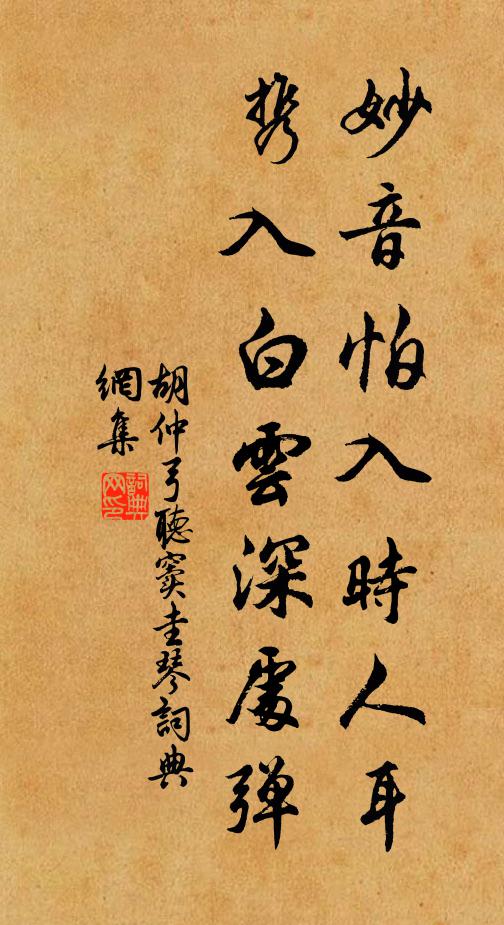 妙音怕入時人耳
携入白雲深處弹
胡仲弓聽竇圭琴詞典
網集
詞典
网印